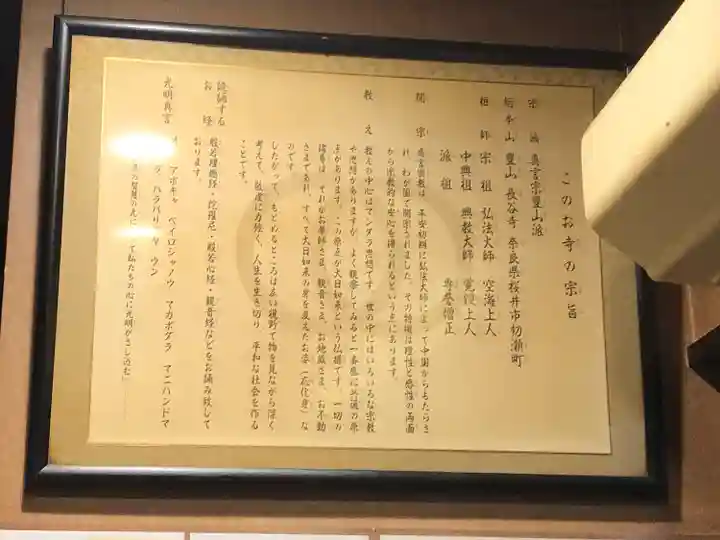 このお寺の宗旨
宗派 真言宗豊山派
総本山 豊山 長谷寺 奈良県桜井市初瀬町
祖師 宗祖 弘法大師 空海上人
中興祖 興教大師 覚鑁上人
派祖 専誉僧正
開宗 真言宗教は、平安初期に弘法大師によって中国からもたらさ
れ、わが国で開宗されました。その特徴は理性と感性の両面
から宗教的な安心を得られるという点にあります。
教え 教えの中心はマンダラ思想です。世の中にはいろいろな宗教
や思想がありますが、よく観察してみると一番底に共通の原
点があります。この原点が大日如来という仏様です。一切の
諸尊は、それがお薬師さま、観音さま、お地蔵さま、お不動
さまであれ、すべて大日如来の身を変えたお姿（応化身）な
のです
したがって、もとめるところは広い視野で物を見ながら深く
考えて、敬虔に力強く、人生を生き切り 平和な社会を作る
ことです。
読誦する
お経 般若理趣経・陀羅尼・般若心経・観音経などをお誦み致して
おります。
光明真言 アボキャ ベイロシャノウ マカボダラ マニハンドマ
ハラバリタヤ ウン
の智慧の光に して私たちの心に光明がさし込む」